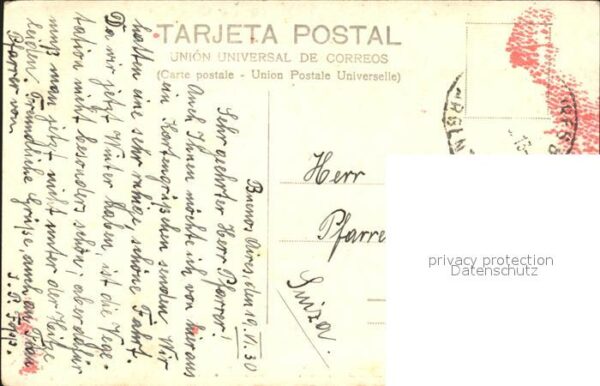 TARJETA POSTAL
UNIÓN UNIVERSAL DE CORREOS
(Carte postale - Union Postale Universelle)
Buenos Aires, den 19. VI. 30
Sehr geehrter Herr Pfarrer!
Auch Ihnen möchte ich von hier aus
ein Kartengrüßchen senden. Wir
hatten eine sehr ruhige, schöne Fahrt.
Da wir jetzt Winter haben, ist die Vege-
tation nicht besonders schön; aber dafür
muß man jetzt nicht unter der Hitze
leiden. Freundliche Grüße, auch an Frau
Pfarrer von
Herr
Pfarre
Suiza.
privacy protection
Datenschutz